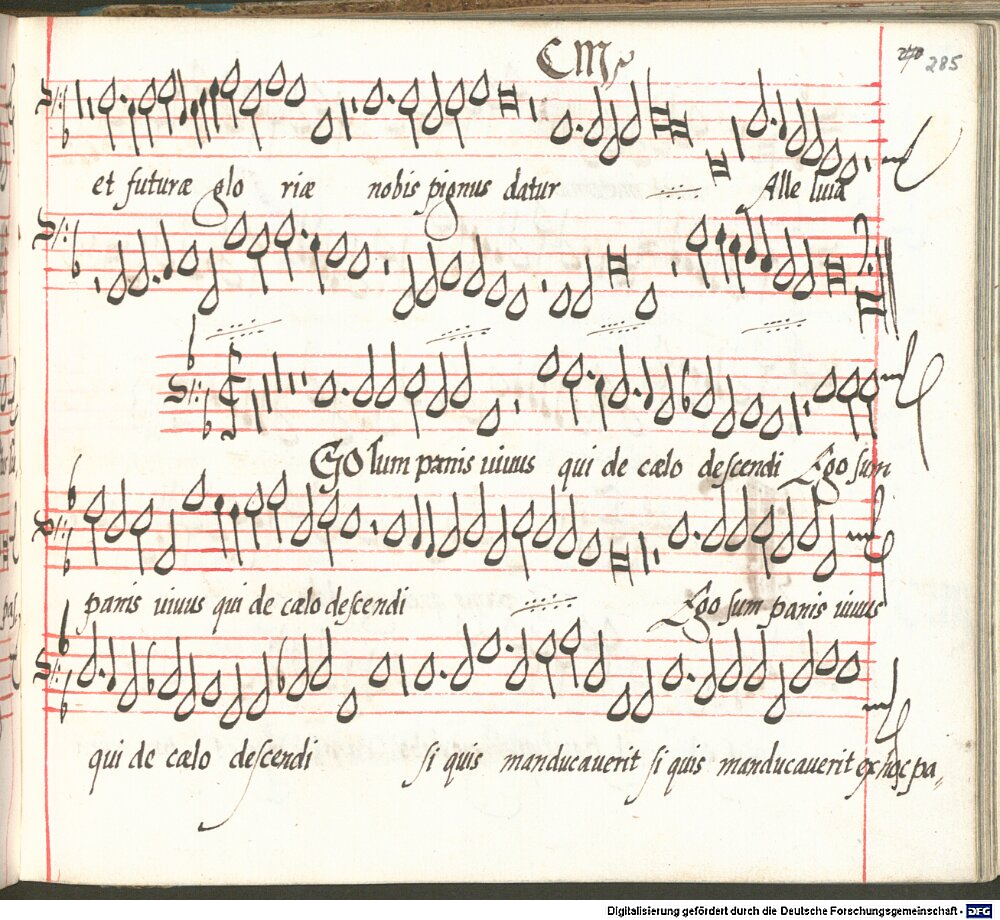 CM
285
et futuræ glo riæ nobis pignus datur Alle luia
EGO sum panis uiuus qui de cælo descendi Ego sum
panis uiuus qui de cælo descendi Ego sum panis uiuus
qui de cælo descendi si quis manducauerit si quis manducauerit ex hoc pa,
Digitalisierung gefördert durch die Deutsche Forschungsgemeinschaft - DFG